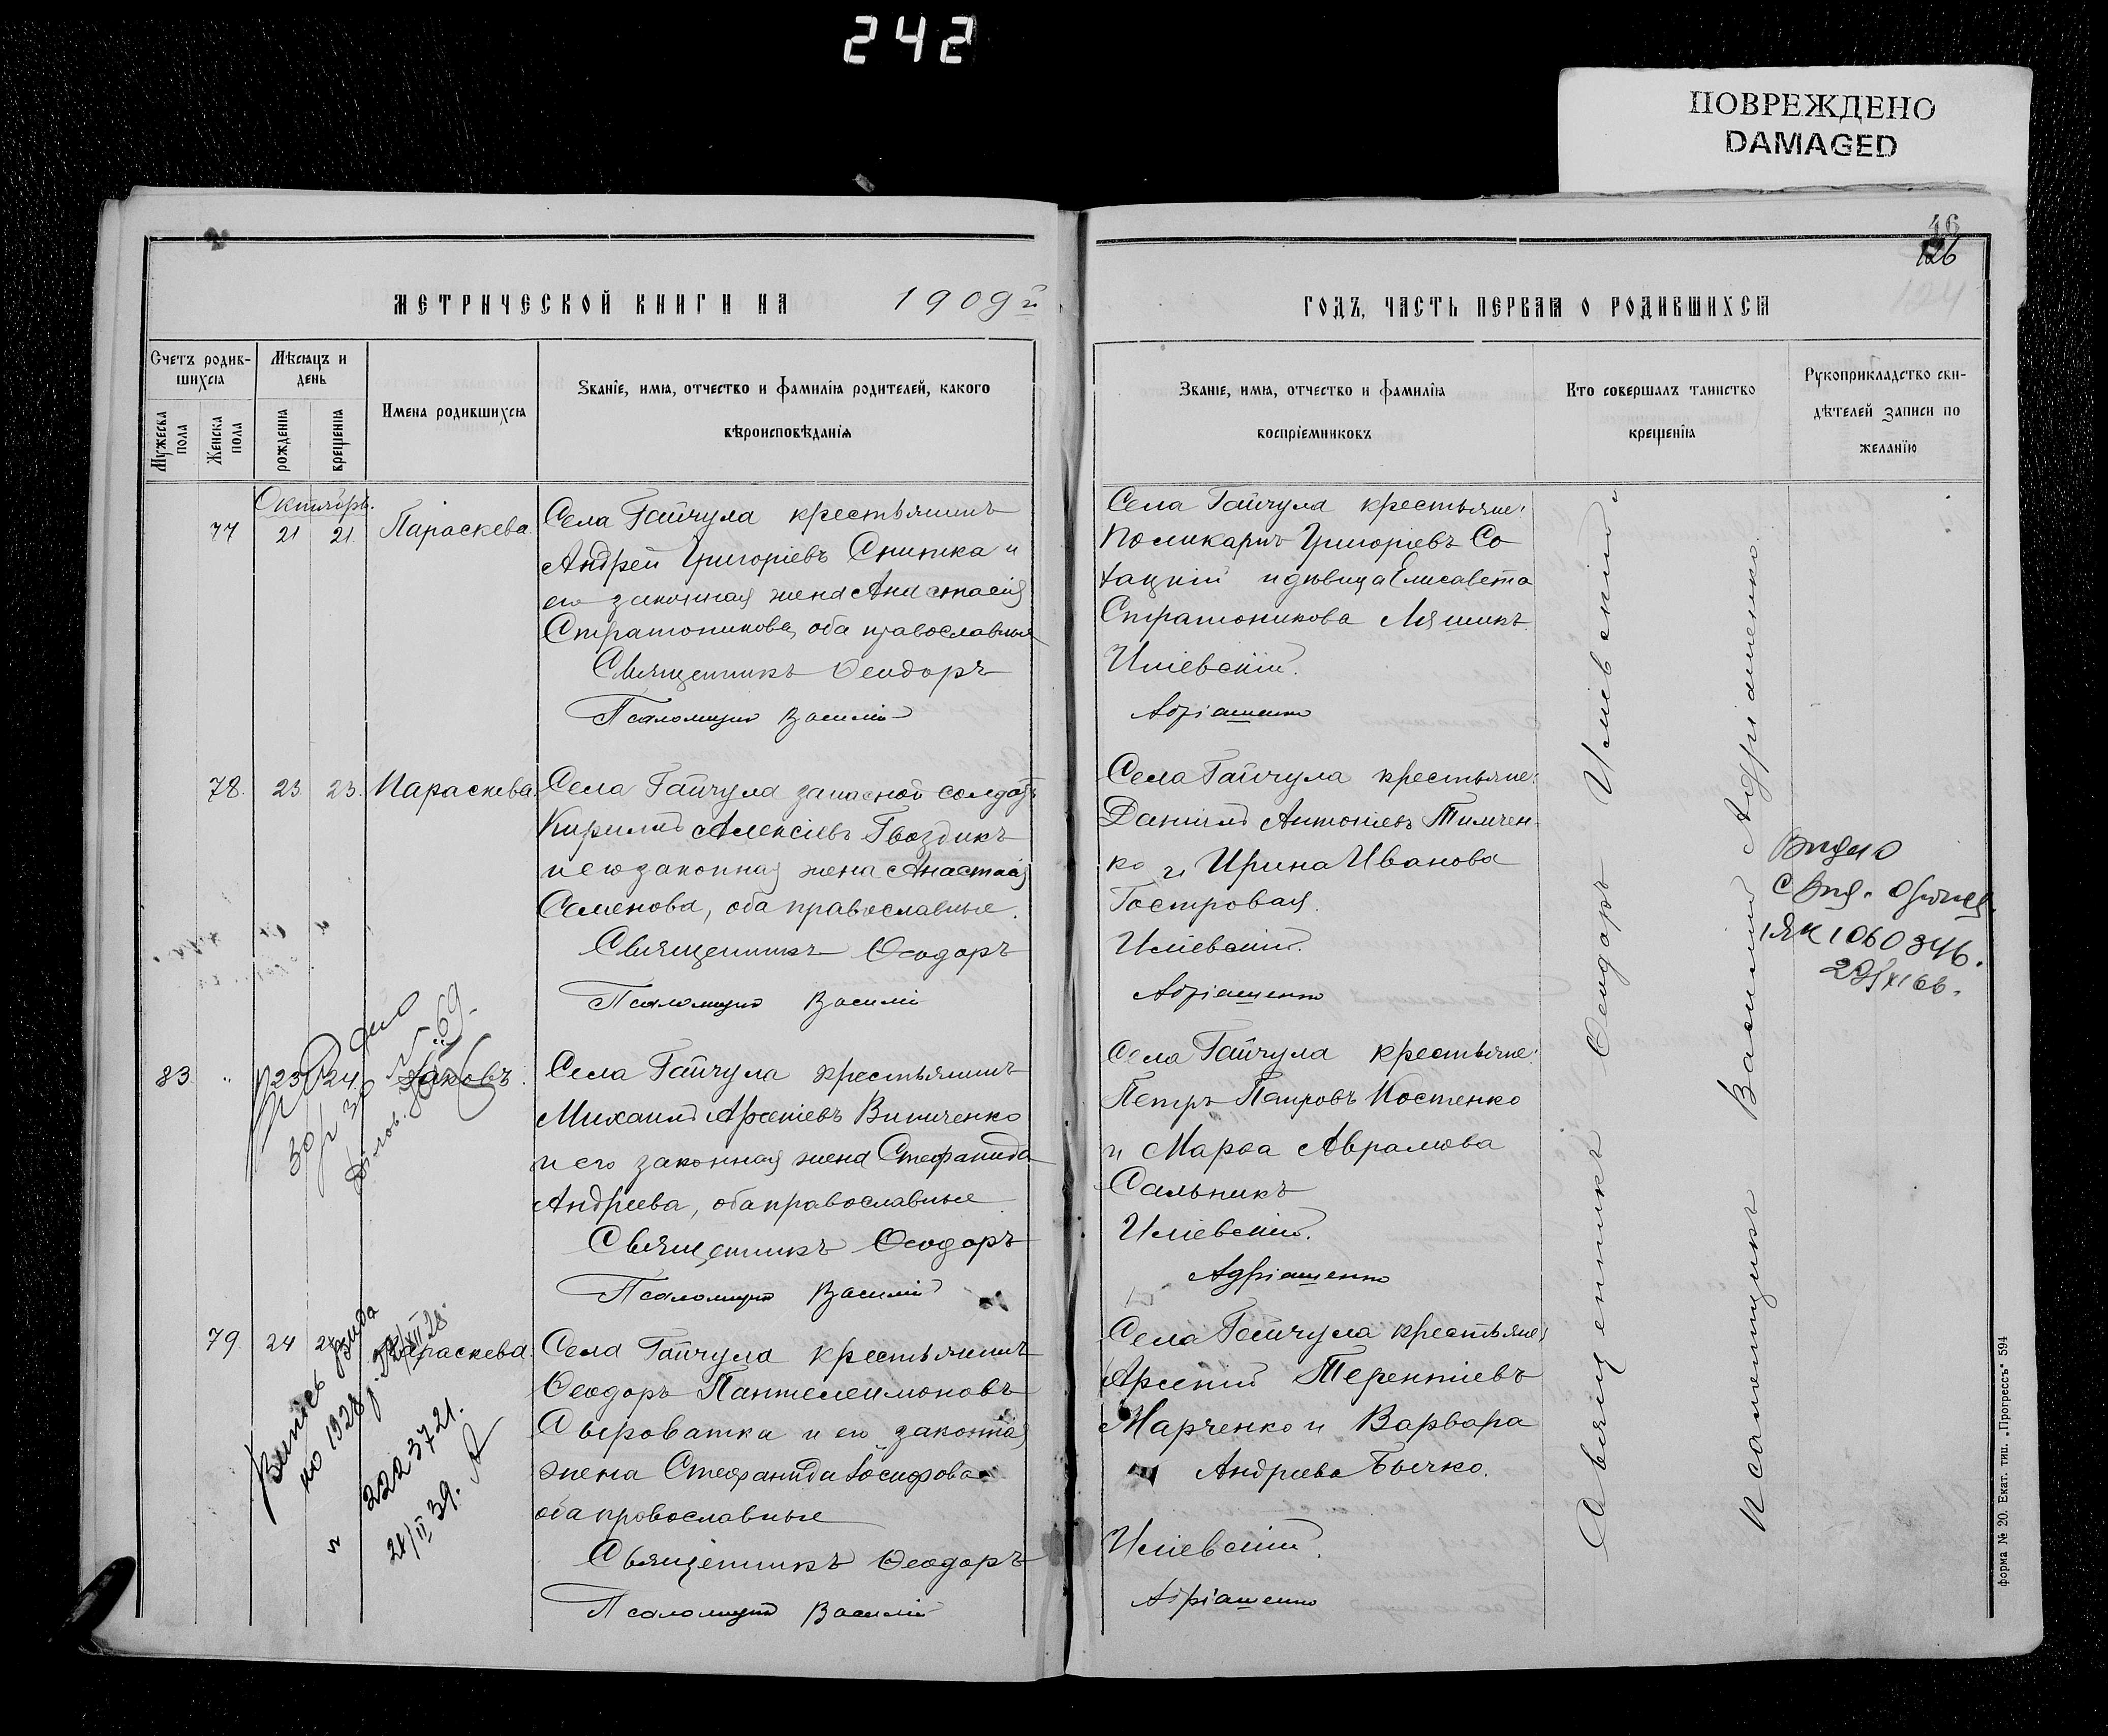 242
ПОВРЕЖДЕНО
DAMAGED
46
126
124
МЕТРИЧЕСКОЙ КНИГИ НА 1909й
ГОДЪ, ЧАСТЬ ПЕРВАЯ О РОДИВШИХСЯ
Счетъ родив-
шихся
Мужеска
пола
Женска
пола
Мѣсяцъ и
день
рожденія
крещенія
Имена родившихся
Званіе, имя, отчество и фамилія родителей, какого
вѣроисповѣданія
Званіе, имя, отчество и фамилія
воспріемниковъ
Кто совершалъ таинство
крещенія
Рукоприкладство сви-
дѣтелей записи по
желанію
Октябрь.
77 21 21 Параскева
Села Гайчула крестьянинъ
Андрей Григоріевъ и
его законная жена Анастасія
Стратоникова, оба православные
Священникъ Ѳеодоръ
Псаломщикъ Василій
Села Гайчула крестьяне:
Поликарпъ Григоріевъ Со
хацкій и дѣвица Елисавета
Стратоникова Ляшикъ.
Иліевскій.
Адріашенко
78. 23 23. Параскева.
Села Гайчула запасной солдатъ
Кириллъ Алексіевъ Гвоздикъ
и его законная жена Анастасія
Семенова, оба православные.
Священникъ Ѳеодоръ
Псаломщикъ Василій
Села Гайчула крестьяне:
Даніилъ Антоніевъ Тимчен-
ко и Ирина Иванова
Гостровая.
Иліевскій.
Адріашенко
Видано
1060346.
83 " 23 24 Іаковъ.
Села Гайчула крестьянинъ
Михаилъ Арсеніевъ Виниченко
и его законная жена Стефанида
Андреева, оба православные
Священникъ Ѳеодоръ
Псаломщикъ Василій
Села Гайчула крестьяне:
Петръ Петровъ Костенко
и Марѳа Аврамова
Сальникъ
Иліевскій.
Адріашенко
79. 24 24 Параскева.
Села Гайчула крестьянинъ
Ѳеодоръ Пантелеимоновъ
Сыроватка и его законная
жена Стефанида Іосифова
оба православные
Священникъ Ѳеодоръ
Псаломщикъ Василій
Села Гайчула крестьяне:
Арсеній Терентіевъ
Марченко и Варвара
Андреева Бычко.
Иліевскій.
Адріашенко
2223721.
21/II 39.
Священникъ Ѳеодоръ Иліевскій
Псаломщикъ Василій Адріашенко.
форма № 20. Екат. тип. „Прогрессъ" 594